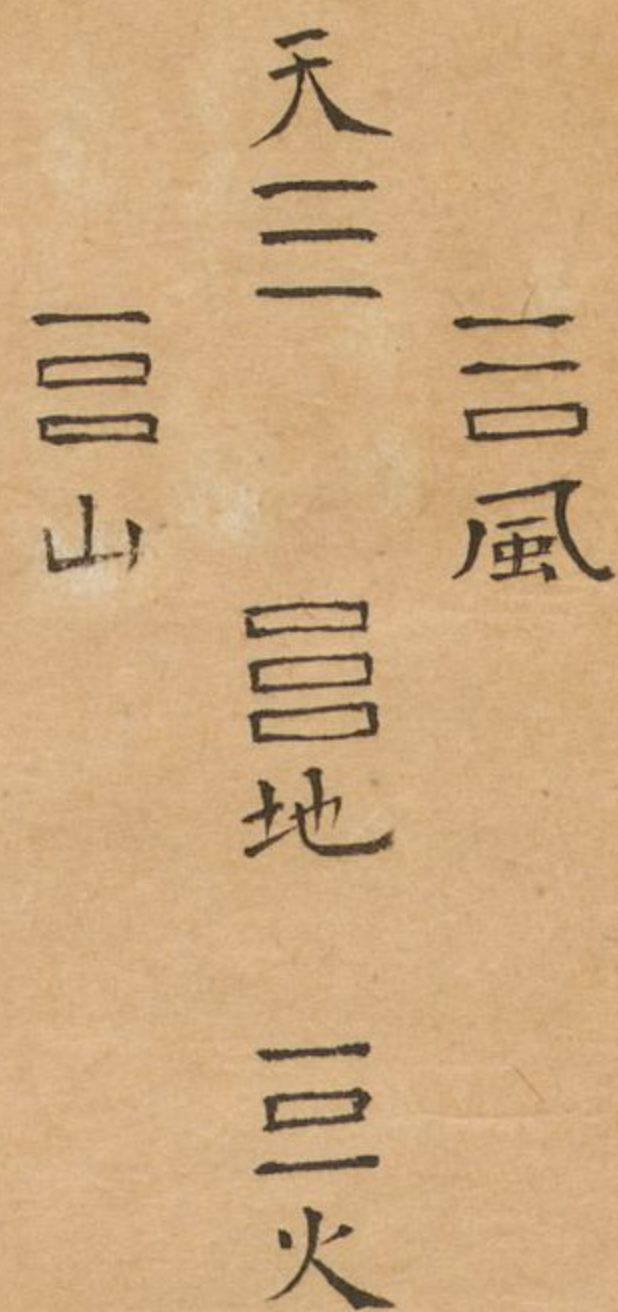 天
風
山
地
火